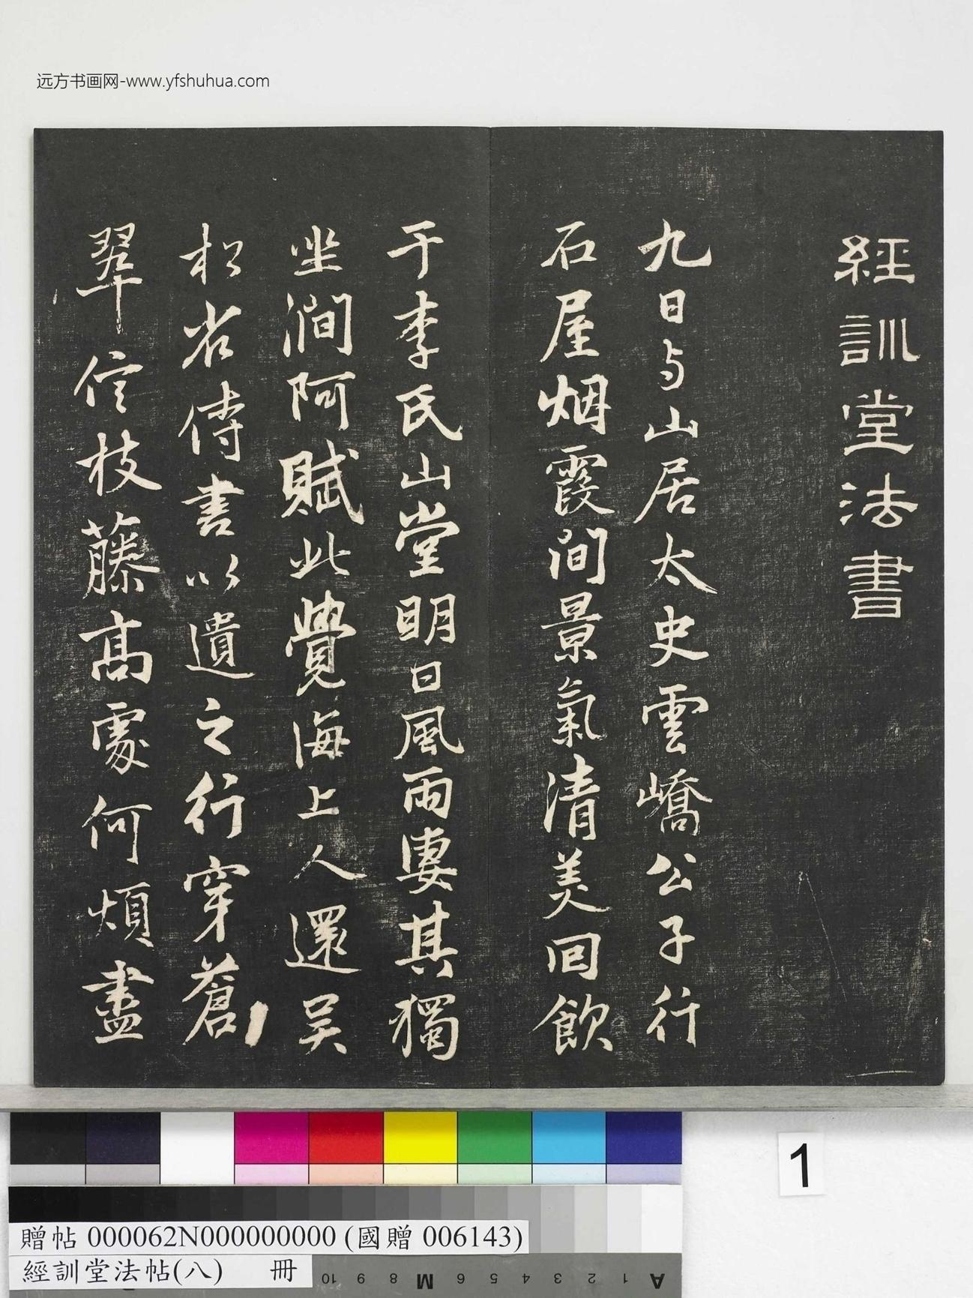 远方书画网-www.yfshuhua.com
經訓堂法書
九日与山居太史雲嶠公子行
石屋烟霞澗景氣清美回飲
于李氏山堂明日風雨凄其獨
坐澗阿賦此覺海上人還吴
松省侍書以遺之行穿蒼
翠信枝藤高處何煩盡
1
贈帖 000062N000000000 (國贈 006143)
經訓堂法帖(八) 冊
10 9 8 M 6 5 4 3 2 1 A